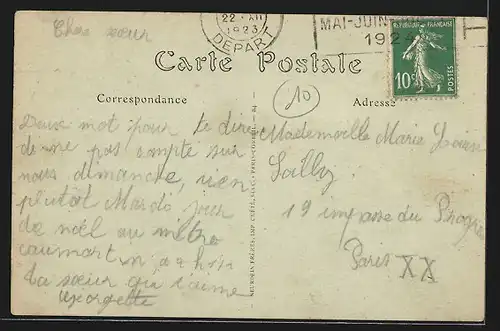 Cher sœur
22 · XII
1923
DEPART
MAI-JUIN
1924
REPUBLIQUE FRANÇAISE
10c
POSTES
Carte Postale
Correspondance
10
Adresse
Deux mot pour te dire
de ne pas compté sur
nous dimanche, vien
plutôt Mardi jour
de noël au métro
caumart
ta sœur qui t'aime
Georgette
Mademoiselle Marie Louise
Sailly
19 impasse du Progrès
Paris XX
NEURDEIN FRÈRES, IMP. CRÉTÉ, SUCC.